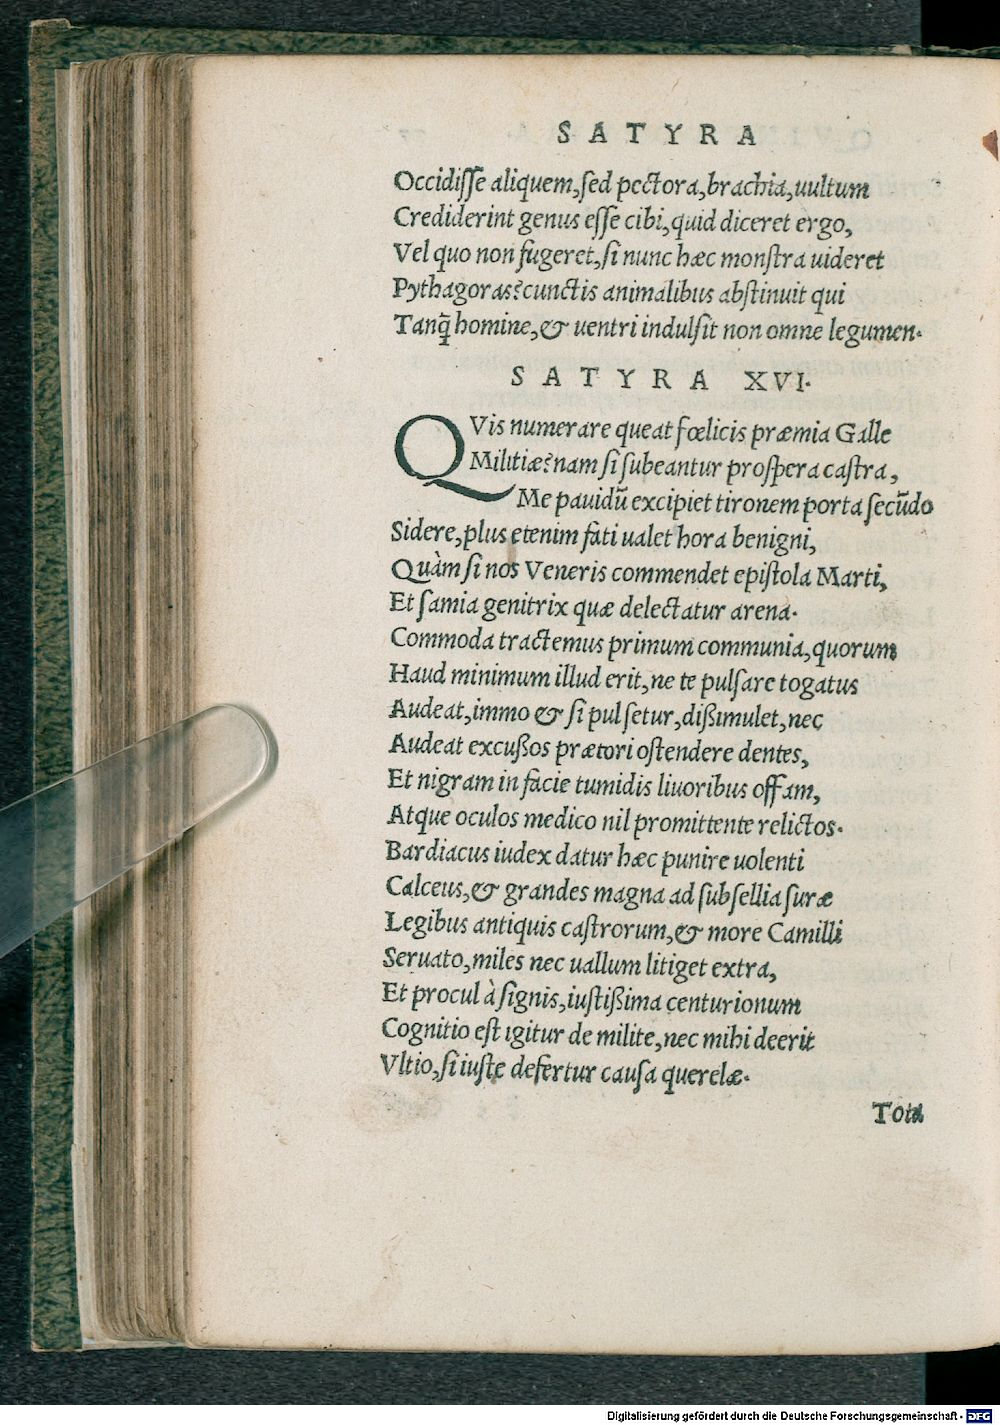 SATYRA
Occidisse aliquem, sed pectora, brachia, uultum
Crediderint genus esse cibi, quid diceret ergo,
Vel quo non fugeret, si nunc hæc monstra uideret
Pythagoras? cunctis animalibus abstinuit qui
Tanq̃ homine, & uentri indulsit non omne legumen.
SATYRA XVI.
QVis numerare queat fœlicis præmia Galle
Militiæ? nam si subeantur prospera castra,
Me pauidũ excipiet tironem porta secũdo
Sidere, plus etenim fati ualet hora benigni,
Quàm si nos Veneris commendet epistola Marti,
Et samia genitrix quæ delectatur arena.
Commoda tractemus primum communia, quorum
Haud minimum illud erit, ne te pulsare togatus
Audeat, immo & si pulsetur, dißimulet, nec
Audeat excußos prætori ostendere dentes,
Et nigram in facie tumidis liuoribus offam,
Atque oculos medico nil promittente relictos.
Bardiacus iudex datur hæc punire uolenti
Calceus, & grandes magna ad subsellia suræ
Legibus antiquis castrorum, & more Camilli
Seruato, miles nec uallum litiget extra,
Et procul à signis, iustißima centurionum
Cognitio est igitur de milite, nec mihi deerit
Vltio, si iuste defertur causa querelæ.
Tota
Digitalisierung gefördert durch die Deutsche Forschungsgemeinschaft - DFG